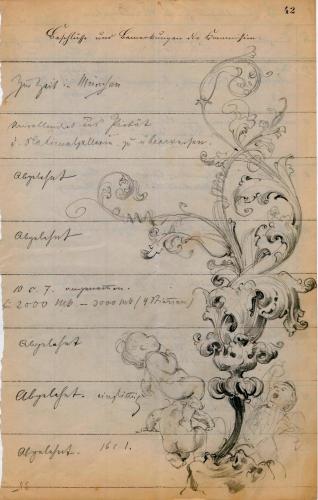 42
Beschlüsse und Bemerkungen der Kommission.
Zur Zeit in München
unvollendet aus Pietät
d. Nationalgallerie zu überweisen.
Abgelehnt
Abgelehnt
10 c. 7. angenommen.
2000 Mk – 3000 Mk (9 Stimmen)
Abgelehnt
Abgelehnt. einstimmig
Abgelehnt. 16 c. 1.